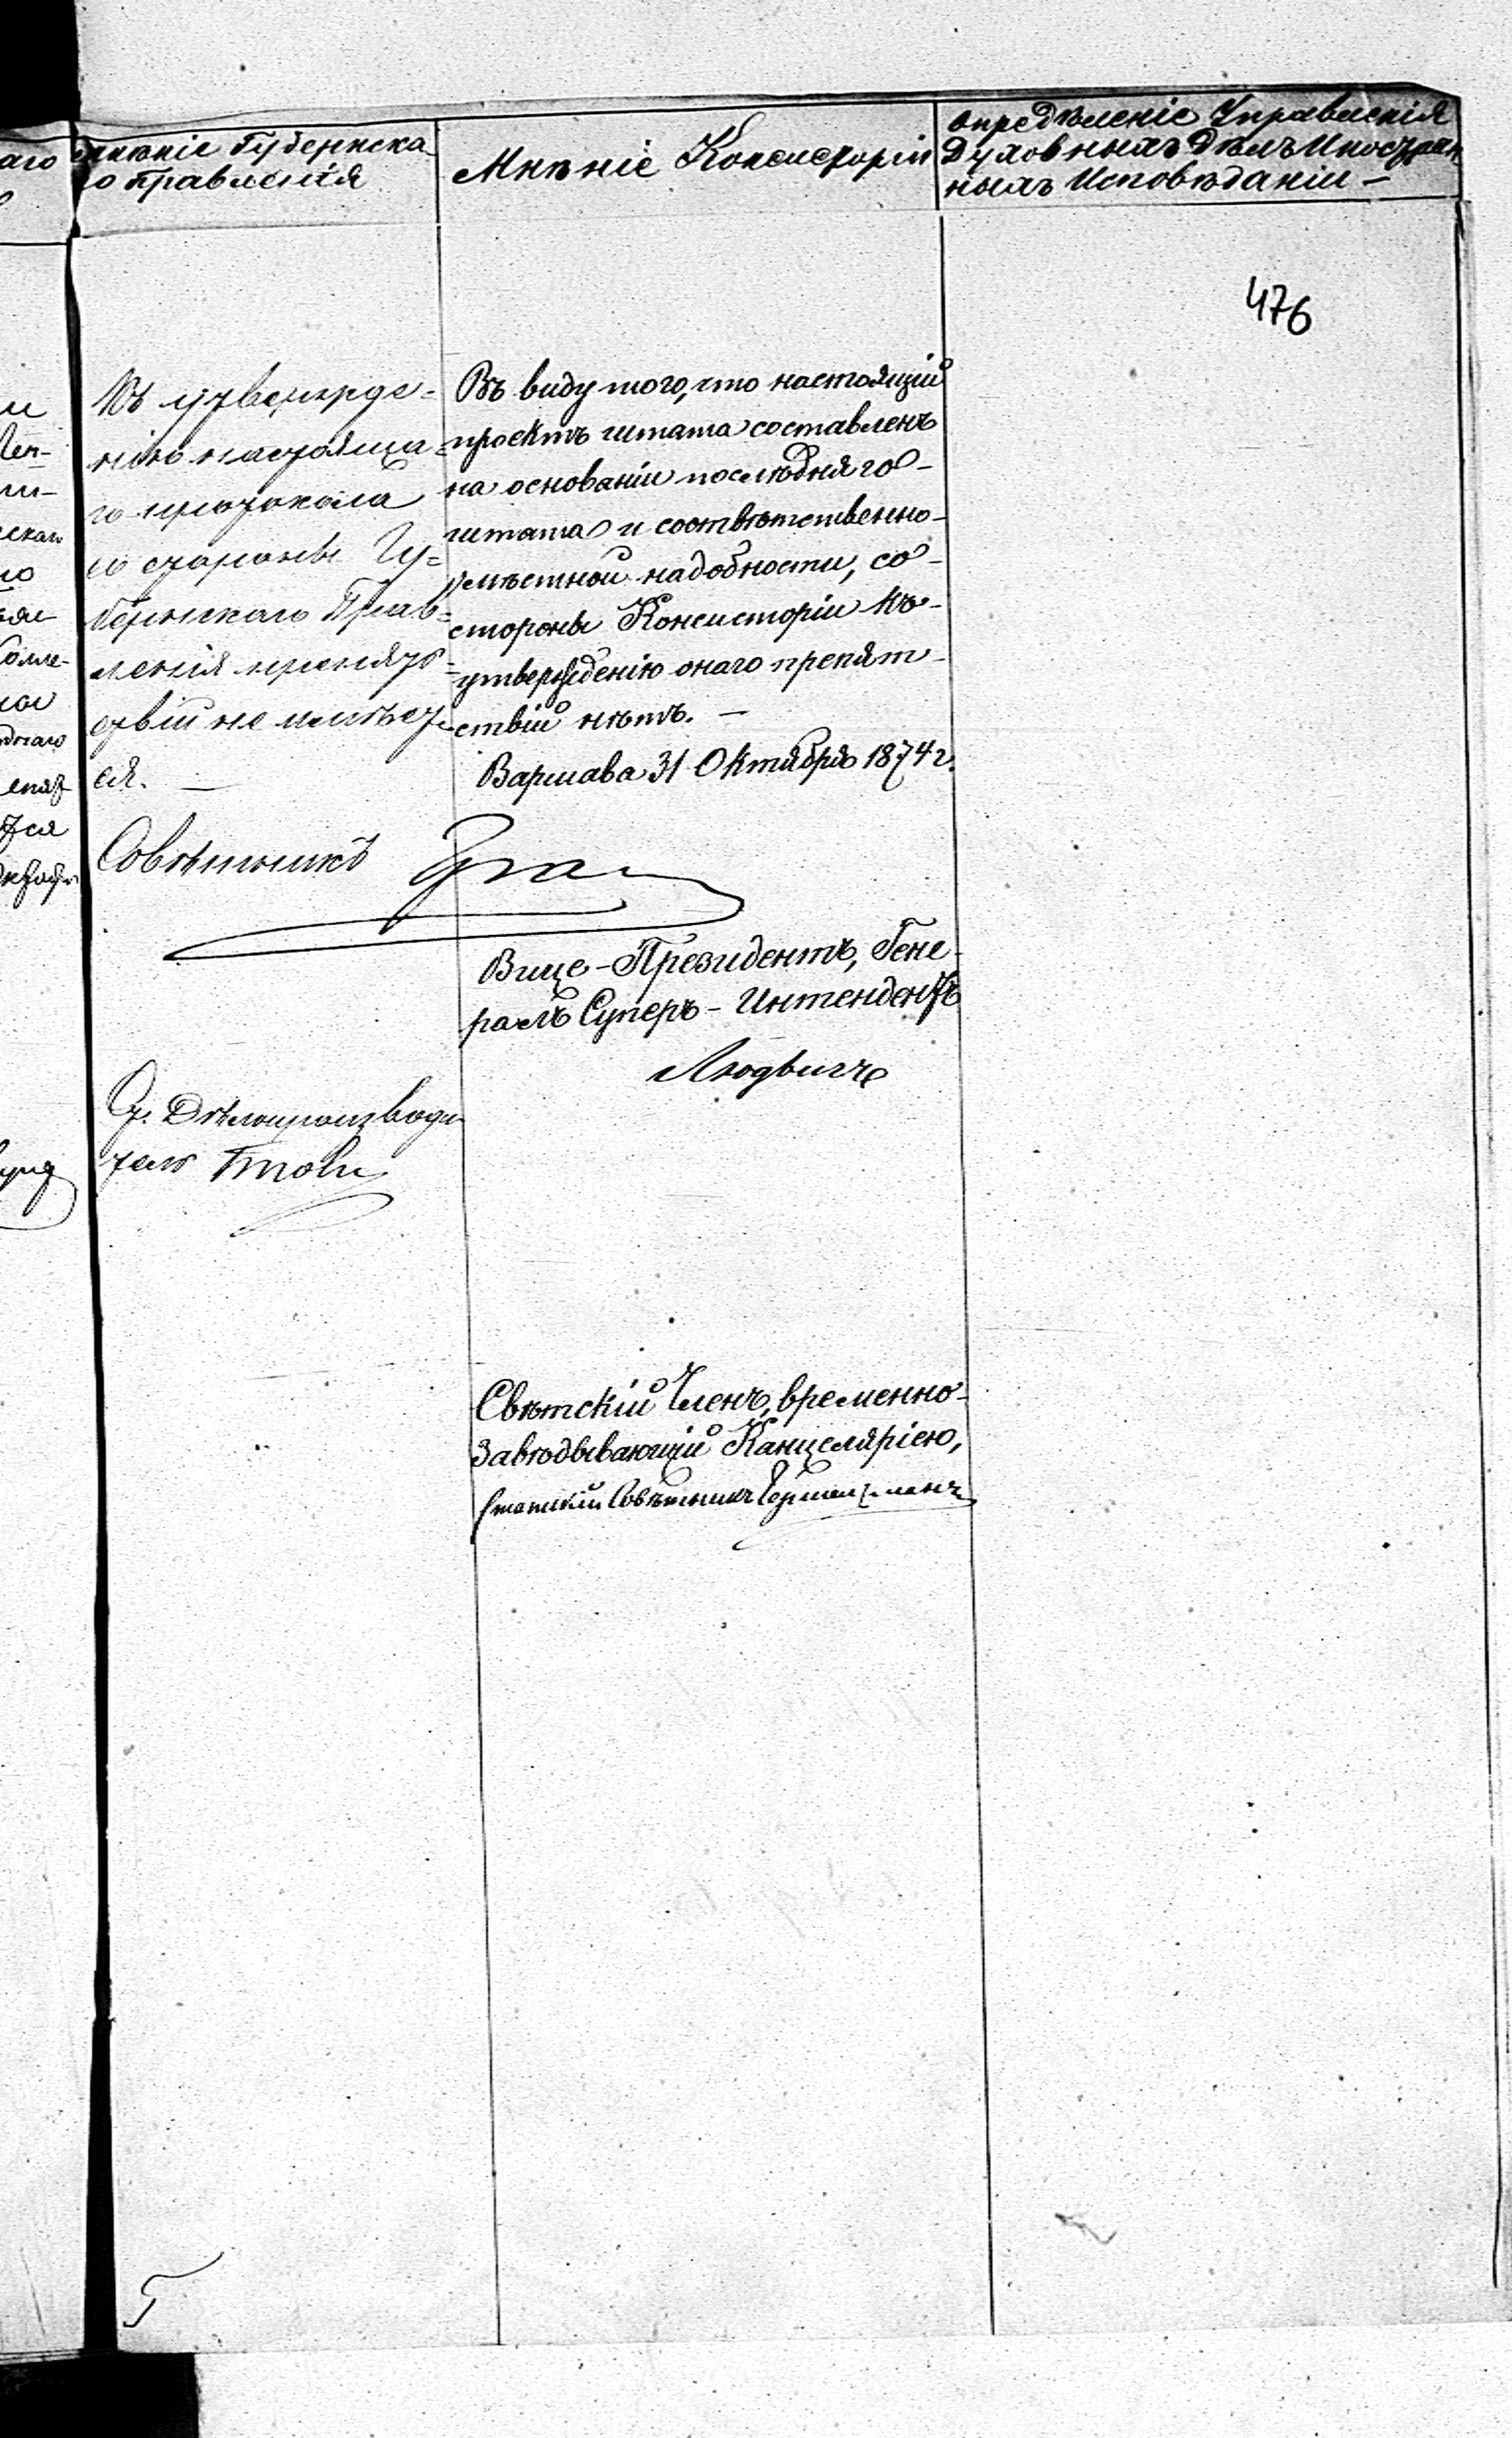 мнѣніе Губернска-
го правленія
Мнѣніе Консисторіи
Опредѣленіе Управленія
Духовныхъ Дѣлъ Иностран
ныхъ Исповѣданіи –
476
Къ утвержде=
нію настояща=
го протокола
со стороны Гу=
бернскаго Прав=
ленія препят=
ствій не имѣет
ся. —
Совѣтникъ
Въ виду того, что настоящій
проектъ штата составленъ
на основаніи послѣдняго-
штата и соотвѣтственно-
мѣстной надобности, со-
стороны Консисторіи къ-
утвержденію онаго препят-
ствій нѣтъ. —
Варшава 31 Октября 1874 г.
Вице-Президентъ, Гене-
ралъ Суперъ-Интендентъ
Людвигъ
Дѣлопроизводи
тель
Свѣтскій Членъ, временно-
Завѣдывающій Канцеляріею,
Статскій Совѣтникъ